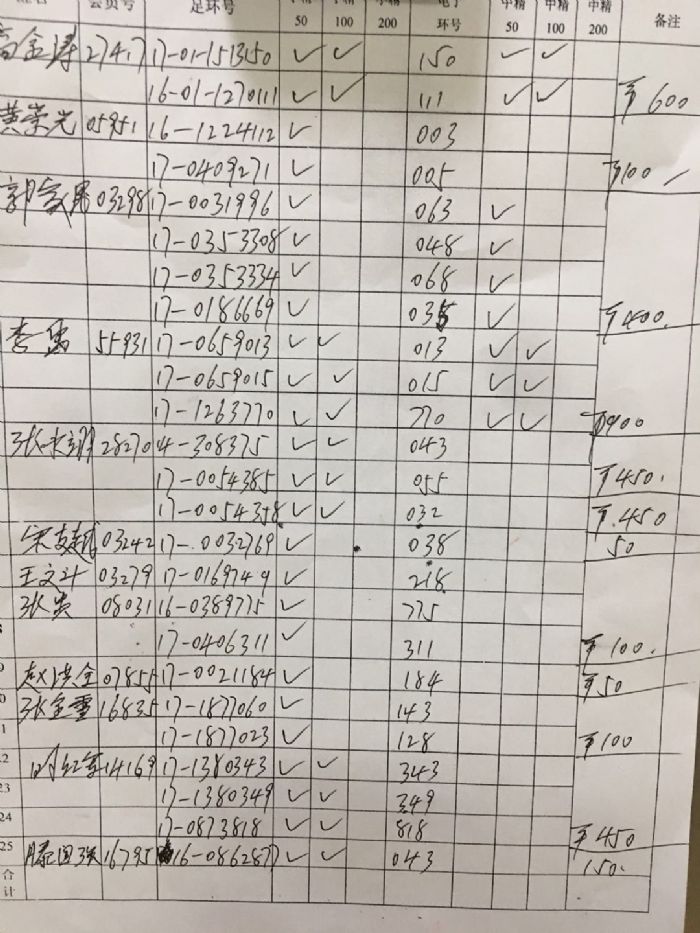 会员号 足环号 环号 备注
50 100 200 50 100 200
27417 17-01-1513150 ✓ ✓ 150 ✓ ✓
16-01-1270111 ✓ ✓ 111 ✓ ✓ ￥600
黄荣光 05951 16-1224112 ✓ 003
17-0409271 ✓ 005 ￥100
03298 17-0031996 ✓ 063 ✓
17-0353308 ✓ 048 ✓
17-0353334 ✓ 068 ✓
17-0186669 ✓ 035 ✓ ￥400.
李 55931 17-0659013 ✓ ✓ 013 ✓ ✓
17-0659015 ✓ ✓ 015 ✓ ✓
17-1263770 ✓ ✓ 770 ✓ ✓ ￥900
28270 04-308375 ✓ ✓ 043
17-0054385 ✓ ✓ 055 ￥450.
17-0054358 ✓ ✓ 032 ￥.450
03242 17-.0032769 ✓ 038 50
王文斗 03279 17-0169749 ✓ 218
张贵 08031 16-0389775 ✓ 775
17-0406311 ✓ 311 ￥100.
赵洪全 07855 17-0021184 ✓ 184 ￥50
张金重 16835 17-1877060 ✓ 143
17-1877023 ✓ 128 ￥100
14169 17-1380343 ✓ ✓ 343
23 17-1380349 ✓ ✓ 349
24 17-0873818 ✓ ✓ 818 ￥450
25 滕国强 16795 16-0862877 ✓ ✓ 043 150.
合
计